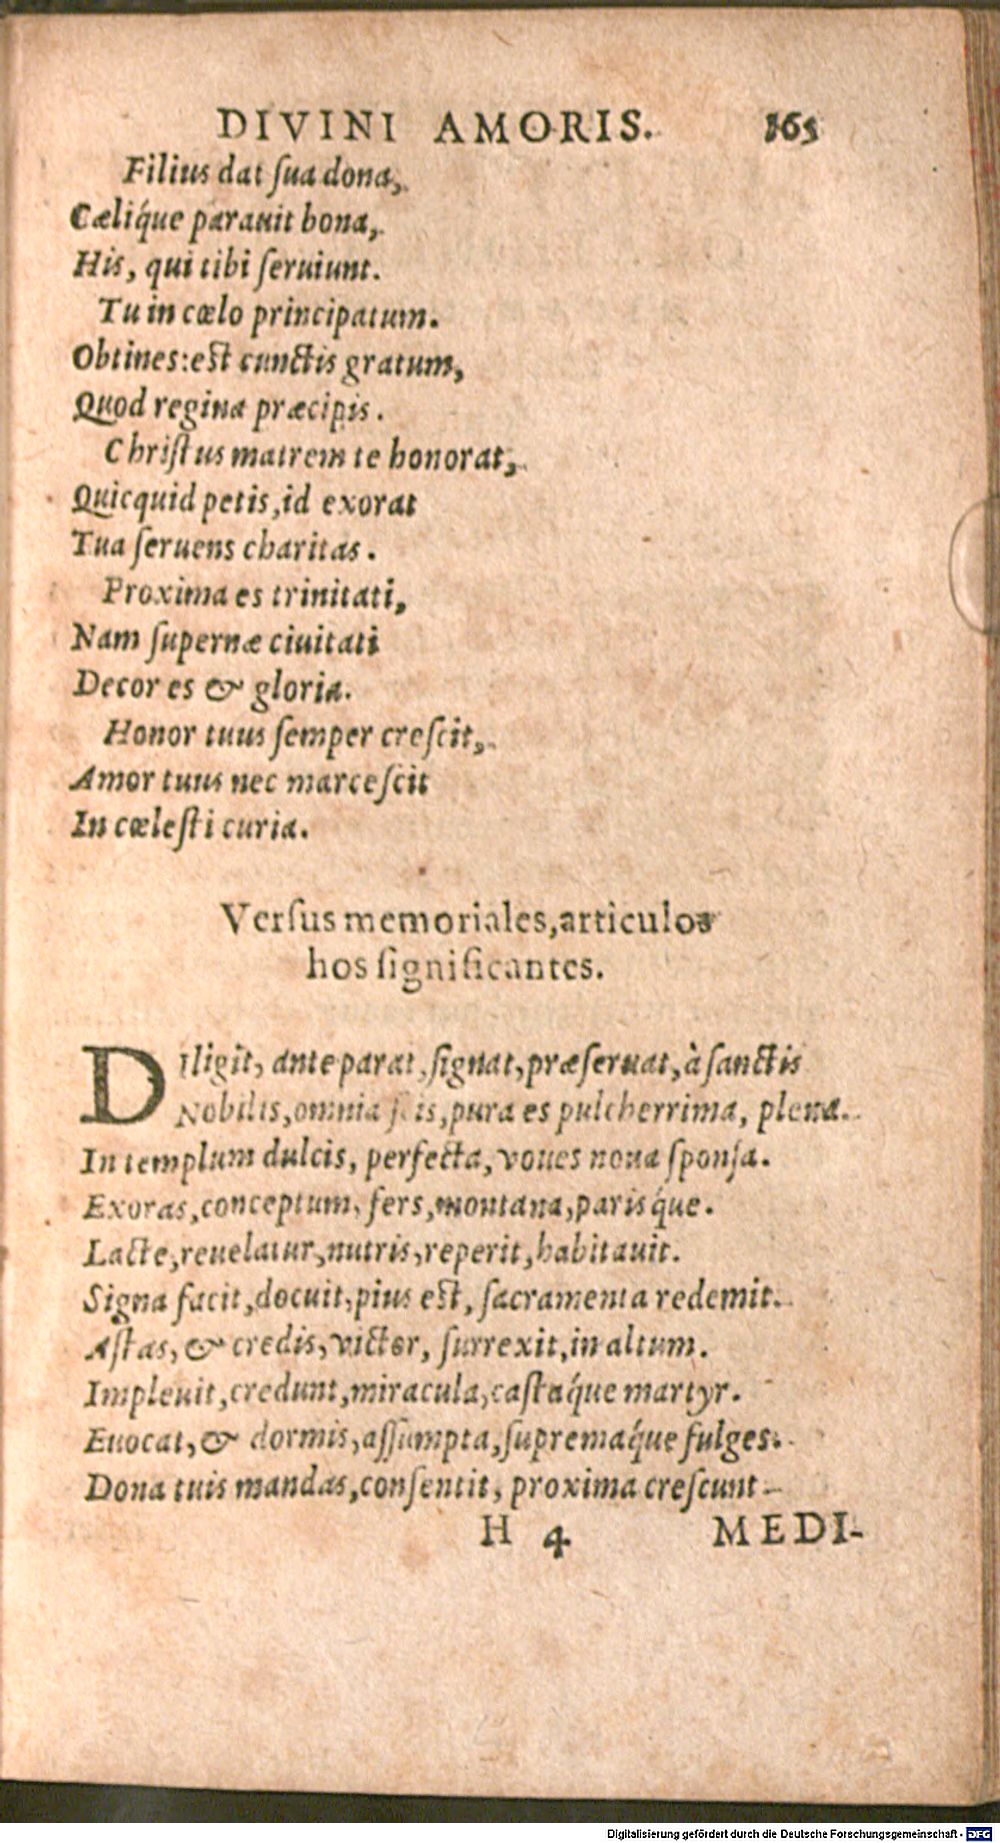 DIVINI AMORIS. 165
Filius dat ſua dona,
Cæliq́ue parauit bona,
His, qui tibi ſeruiunt.
Tu in cœlo principatum.
Obtines: eſt cunctis gratum,
Quod regina præcipis.
Chriſtus matrem te honorat,
Quicquid petis, id exorat
Tua feruens charitas.
Proxima es trinitati,
Nam ſupernæ ciuitati
Decor es & gloria.
Honor tuus ſemper creſcit,
Amor tuus nec marceſcit
In cœleſti curia.
Verſus memoriales, articulos
hos ſignificantes.
DIligit, ante parat, ſignat, præſeruat, à ſanctis
Nobilis, omnia ſcis, pura es pulcherrima, plena.
In templum dulcis, perfecta, voues noua ſponſa.
Exoras, conceptum, fers, montana, parisq́ue.
Lacte, reuelatur, nutris, reperit, habitauit.
Signa facit, docuit, pius eſt, ſacramenta redemit.
Aſtas, & credis, victor, ſurrexit, in altum.
Impleuit, credunt, miracula, caſtaq́ue martyr.
Euocat, & dormis, aſſumpta, ſupremaq́ue fulges.
Dona tuis mandas, conſentit, proxima creſcunt
H 4 MEDI-
Digitalisierung gefördert durch die Deutsche Forschungsgemeinschaft - DFG